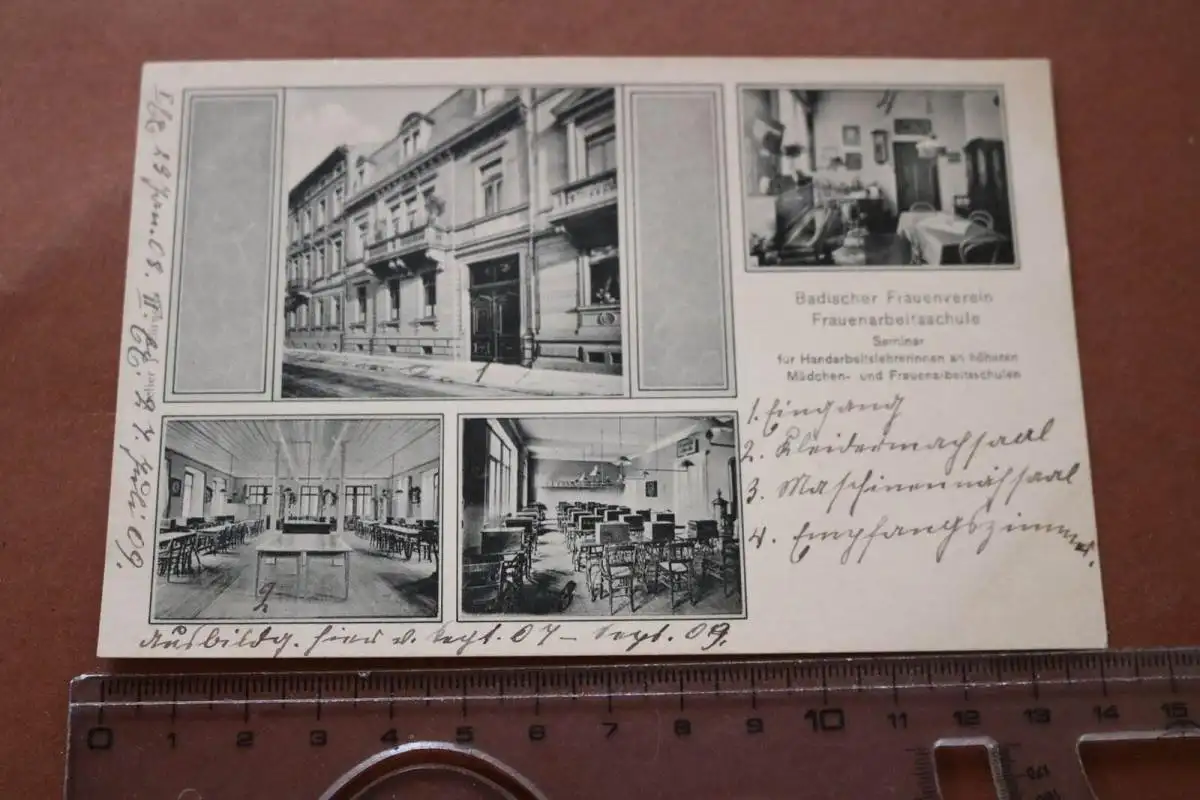 Badischer Frauenverein
Frauenarbeitsschule
Seminar
für Handarbeitslehrerinnen an höheren
Mädchen- und Frauenarbeitsschulen
1. Eingang
2. Kleidermachsaal
3. Maschinennähsaal
4. Empfangszimmer
Ausbildg. hier v. Sept. 07 - Sept. 09.
29. 08. II. 27. Juli 09.
0 1 2 3 4 5 6 7 8 9 10 11 12 13 14 15